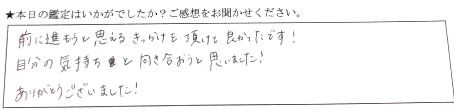 ★本日の鑑定はいかがでしたか？ご感想をお聞かせください。
前に進もうと思えるきっかけを頂けて良かったです！
自分の気持ちと向き合おうと思いました！
ありがとうございました！